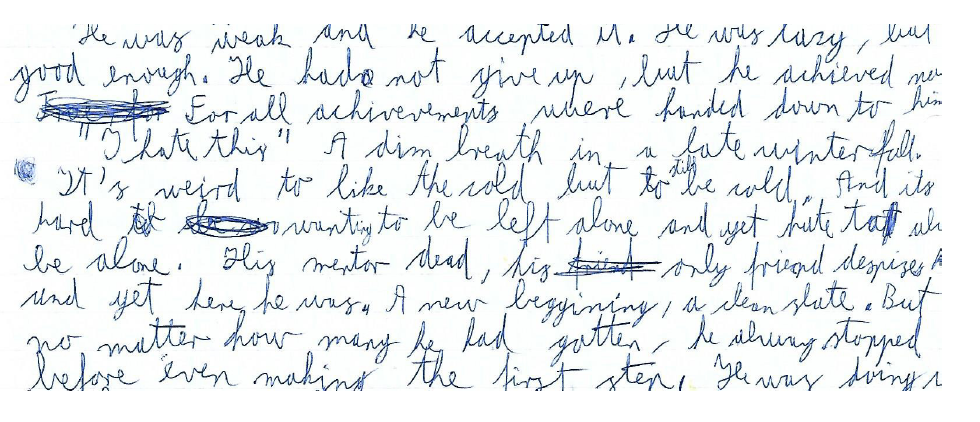 He was weak and he accepted it. He was lazy, but
good enough. He hado not give up, but he achieved
For all achievements, where handed down to him
"I hate this" A dim breath in a late winter fall.
"It's weird to like the cold but to still be cold." And its
hard wanting to be left alone and yet hate
be alone. His mentor dead, his friend only friend despises
and yet here he was. A new beggining, a clean slate. But
no matter how many he had gotten, he alway stopped
before even making the first step. He was doing